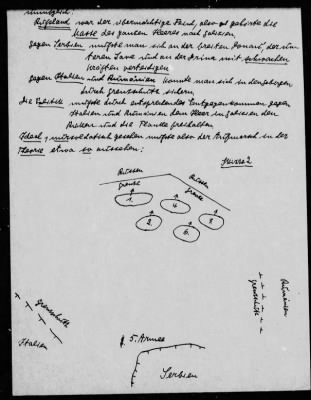 unmöglich!
Rußland war der übermächtige Feind, also gehörte die
Masse des ganzen Heeres nach Galizien,
gegen Serbien mußte man sich an der breiten Donau, der un-
teren Save und an der Drina mit schwachen
Kräften verteidigen
gegen Italien und Rumänien konnte man sich
durch Grenzschutz sichern,
Die Politik mußte durch Entgegenkommen gegen
Italien und Rumänien dem Heer in Galizien den
Rücken und die Flanke freihalten
Ideal, militärisch gesehen mußte also der Aufmarsch in der
Theorie etwa so aussehen:
Skizze 2
Russen
grenze
Russen
grenze
1.
4.
3.
2.
6.
Grenzschutz
Italien
Grenzschutz
Rumänien
5. Armee
Serbien